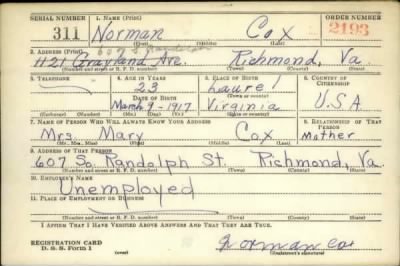 SERIAL NUMBER 1. NAME (Print) ORDER NUMBER
311 Norman Cox 2193
(First) (Middle) (Last)
607 S. Randolph
2. ADDRESS (Print)
1121 Grayland Ave. Richmond, Va.
(Number and street or R. F. D. number) (Town) (County) (State)
3. TELEPHONE 4. AGE IN YEARS 5. PLACE OF BIRTH 6. COUNTRY OF CITIZENSHIP
23 Laurel
(Town or county)
DATE OF BIRTH
March 9 - 1917 Virginia U.S.A
(Exchange) (Number) (Mo.) (Day) (Yr.) (State or country)
7. NAME OF PERSON WHO WILL ALWAYS KNOW YOUR ADDRESS 8. RELATIONSHIP OF THAT PERSON
Mrs. Mary Cox Mother
(Mr., Mrs., Miss) (First) (Middle) (Last)
9. ADDRESS OF THAT PERSON
607 So. Randolph St. Richmond, Va.
(Number and street or R. F. D. number) (Town) (County) (State)
10. EMPLOYER'S NAME
Unemployed
11. PLACE OF EMPLOYMENT OR BUSINESS
(Number and street or R. F. D. number) (Town) (County) (State)
I AFFIRM THAT I HAVE VERIFIED ABOVE ANSWERS AND THAT THEY ARE TRUE.
REGISTRATION CARD
D. S. S. Form 1 (over) Norman Cox
(Registrant's signature)